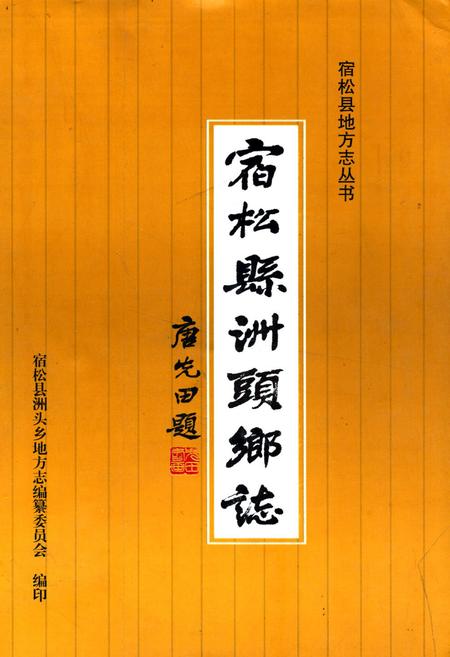 宿松县地方志丛书
宿松縣洲頭鄉誌
唐先田題
宿松县洲头乡地方志编纂委员会 编印